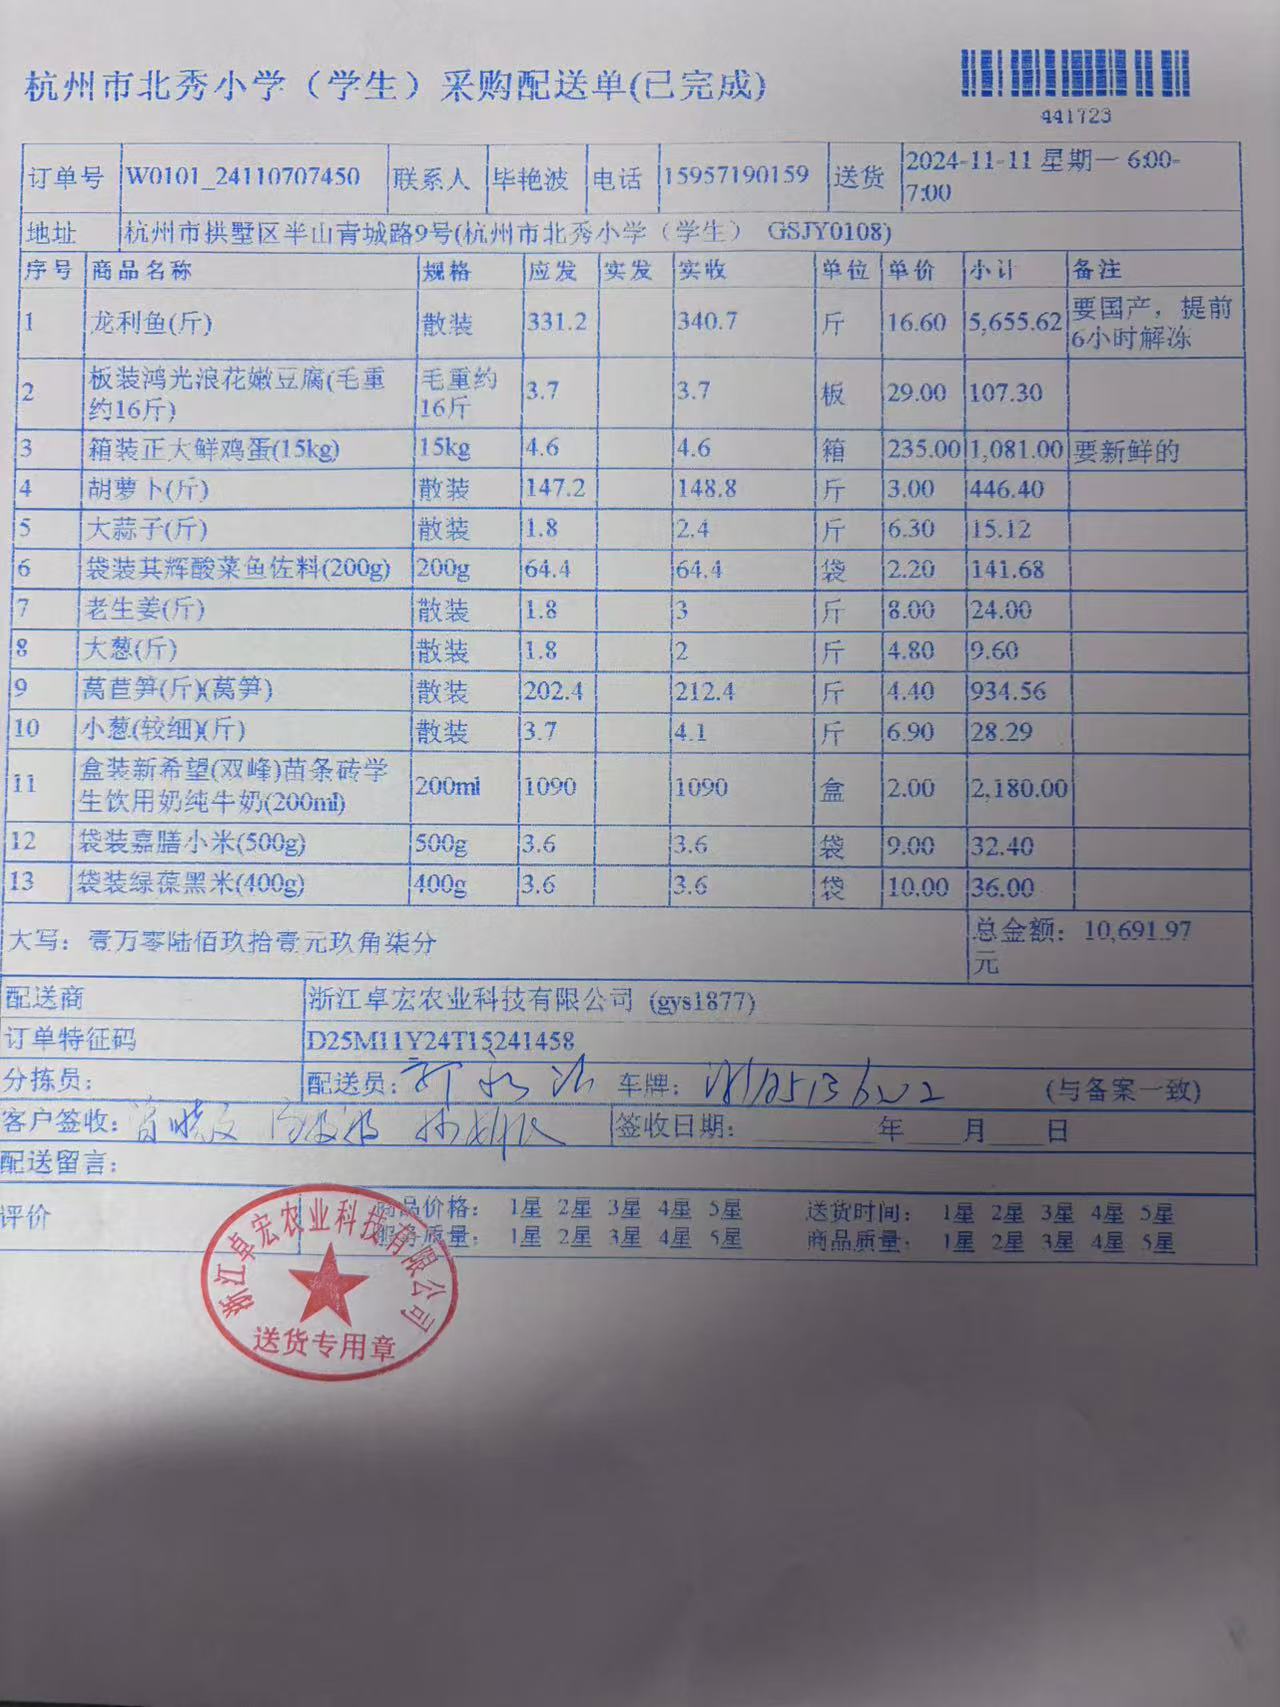 杭州市北秀小学（学生）采购配送单(已完成)
441723
订单号 W0101_24110707450 联系人 毕艳波 电话 15957190159 送货 2024-11-11 星期一 6:00-
7:00
地址 杭州市拱墅区半山青城路9号(杭州市北秀小学（学生） GSJY0108)
序号 商品名称 规格 应发 实发 实收 单位 单价 小计 备注
1 龙利鱼(斤) 散装 331.2 340.7 斤 16.60 5,655.62 要国产，提前
6小时解冻
2 板装鸿光浪花嫩豆腐(毛重 毛重约 3.7 3.7 板 29.00 107.30
约16斤) 16斤
3 箱装正大鲜鸡蛋(15kg) 15kg 4.6 4.6 箱 235.00 1,081.00 要新鲜的
4 胡萝卜(斤) 散装 147.2 148.8 斤 3.00 446.40
5 大蒜子(斤) 散装 1.8 2.4 斤 6.30 15.12
6 袋装其辉酸菜鱼佐料(200g) 200g 64.4 64.4 袋 2.20 141.68
7 老生姜(斤) 散装 1.8 3 斤 8.00 24.00
8 大葱(斤) 散装 1.8 2 斤 4.80 9.60
9 莴苣笋(斤)(莴笋) 散装 202.4 212.4 斤 4.40 934.56
10 小葱(较细)(斤) 散装 3.7 4.1 斤 6.90 28.29
11 盒装新希望(双峰)苗条砖学 200ml 1090 1090 盒 2.00 2,180.00
生饮用奶纯牛奶(200ml)
12 袋装嘉膳小米(500g) 500g 3.6 3.6 袋 9.00 32.40
13 袋装绿葆黑米(400g) 400g 3.6 3.6 袋 10.00 36.00
大写：壹万零陆佰玖拾壹元玖角柒分 总金额：10,691.97
元
配送商 浙江卓宏农业科技有限公司 (gys1877)
订单特征码 D25M11Y24T15241458
分拣员： 配送员： 车牌： (与备案一致)
客户签收： 签收日期：________年____月____日
配送留言：
评价 商品价格： 1星 2星 3星 4星 5星 送货时间： 1星 2星 3星 4星 5星
服务质量： 1星 2星 3星 4星 5星 商品质量： 1星 2星 3星 4星 5星
浙江卓宏农业科技有限公司
送货专用章